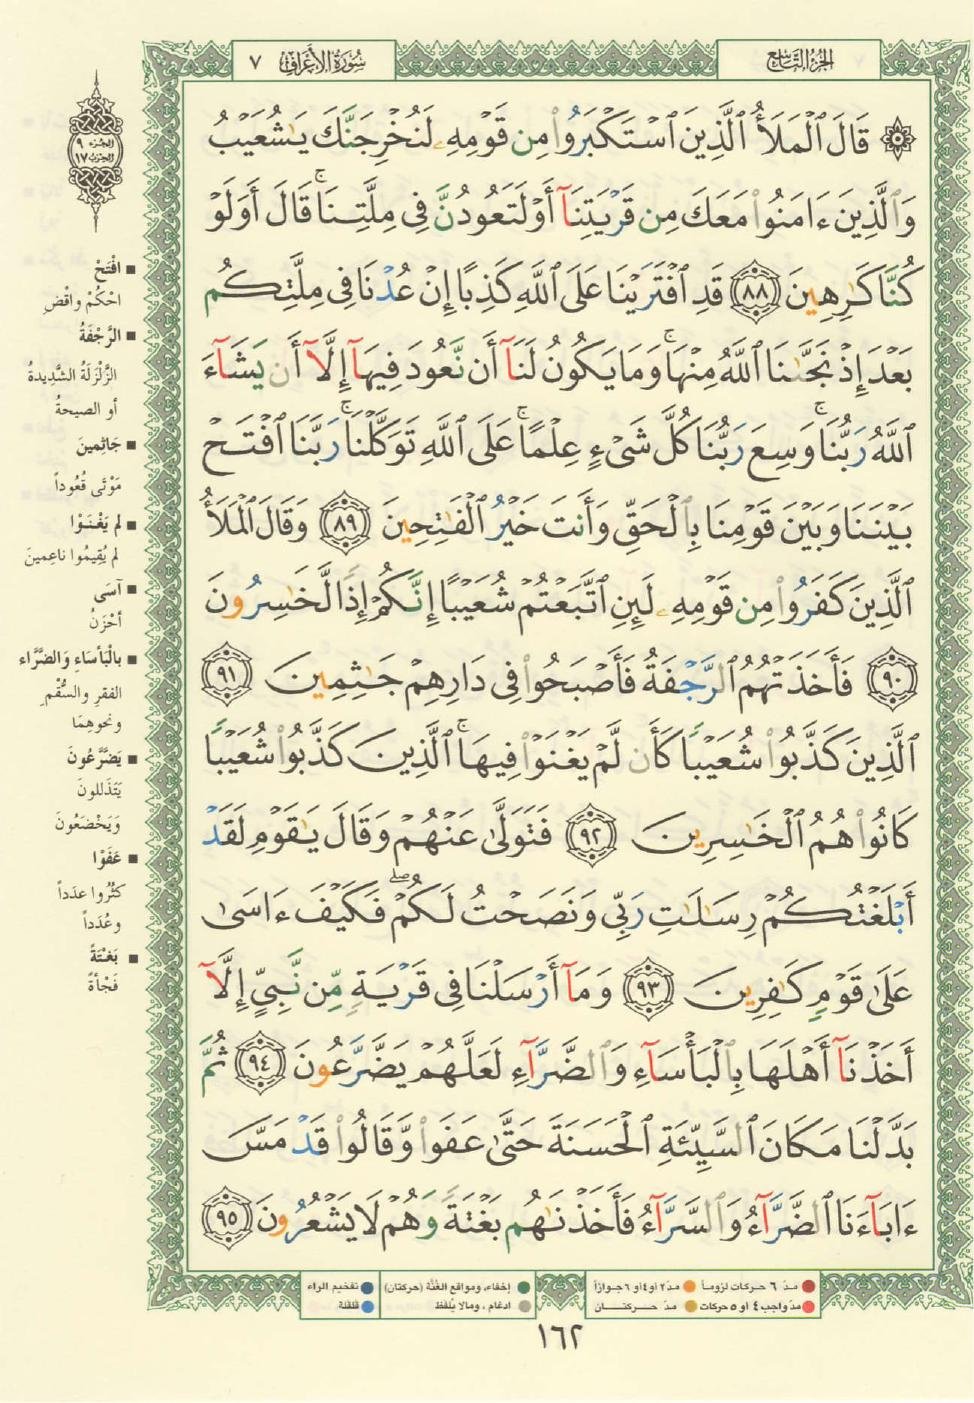 الجزء التاسع
سورة الأعراف ٧
۞ قَالَ ٱلْمَلَأُ ٱلَّذِينَ ٱسْتَكْبَرُوا۟ مِن قَوْمِهِۦ لَنُخْرِجَنَّكَ يَـٰشُعَيْبُ
وَٱلَّذِينَ ءَامَنُوا۟ مَعَكَ مِن قَرْيَتِنَآ أَوْ لَتَعُودُنَّ فِى مِلَّتِنَا ۚ قَالَ أَوَلَوْ
كُنَّا كَـٰرِهِينَ ٨٨ قَدِ ٱفْتَرَيْنَا عَلَى ٱللَّهِ كَذِبًا إِنْ عُدْنَا فِى مِلَّتِكُم
بَعْدَ إِذْ نَجَّىٰنَا ٱللَّهُ مِنْهَا ۚ وَمَا يَكُونُ لَنَآ أَن نَّعُودَ فِيهَآ إِلَّآ أَن يَشَآءَ
ٱللَّهُ رَبُّنَا ۚ وَسِعَ رَبُّنَا كُلَّ شَىْءٍ عِلْمًا ۚ عَلَى ٱللَّهِ تَوَكَّلْنَا ۚ رَبَّنَا ٱفْتَحْ
بَيْنَنَا وَبَيْنَ قَوْمِنَا بِٱلْحَقِّ وَأَنتَ خَيْرُ ٱلْفَـٰتِحِينَ ٨٩ وَقَالَ ٱلْمَلَأُ
ٱلَّذِينَ كَفَرُوا۟ مِن قَوْمِهِۦ لَئِنِ ٱتَّبَعْتُمْ شُعَيْبًا إِنَّكُمْ إِذًا لَّخَـٰسِرُونَ
٩٠ فَأَخَذَتْهُمُ ٱلرَّجْفَةُ فَأَصْبَحُوا۟ فِى دَارِهِمْ جَـٰثِمِينَ ٩١
ٱلَّذِينَ كَذَّبُوا۟ شُعَيْبًا كَأَن لَّمْ يَغْنَوْا۟ فِيهَا ۚ ٱلَّذِينَ كَذَّبُوا۟ شُعَيْبًا
كَانُوا۟ هُمُ ٱلْخَـٰسِرِينَ ٩٢ فَتَوَلَّىٰ عَنْهُمْ وَقَالَ يَـٰقَوْمِ لَقَدْ
أَبْلَغْتُكُمْ رِسَـٰلَـٰتِ رَبِّى وَنَصَحْتُ لَكُمْ ۖ فَكَيْفَ ءَاسَىٰ
عَلَىٰ قَوْمٍ كَـٰفِرِينَ ٩٣ وَمَآ أَرْسَلْنَا فِى قَرْيَةٍ مِّن نَّبِىٍّ إِلَّآ
أَخَذْنَآ أَهْلَهَا بِٱلْبَأْسَآءِ وَٱلضَّرَّآءِ لَعَلَّهُمْ يَضَّرَّعُونَ ٩٤ ثُمَّ
بَدَّلْنَا مَكَانَ ٱلسَّيِّئَةِ ٱلْحَسَنَةَ حَتَّىٰ عَفَوا۟ وَّقَالُوا۟ قَدْ مَسَّ
ءَابَآءَنَا ٱلضَّرَّآءُ وَٱلسَّرَّآءُ فَأَخَذْنَـٰهُم بَغْتَةً وَهُمْ لَا يَشْعُرُونَ ٩٥
الجزء ٩
الحزب ١٧
■ افْتَحْ
احْكُمْ واقْضِ
■ الرَّجْفَةُ
الزَّلْزَلَةُ الشَّدِيدةُ
أو الصيحةُ
■ جَاثِمينَ
مَوْتَى قُعُوداً
■ لم يَغْنَوْا
لم يُقِيمُوا ناعِمينَ
■ آسَى
أحْزَنُ
■ بالْبَأسَاءِ وَالضَّرَّاء
الفقرِ والسُّقْمِ
ونحوهِمَا
■ يَضَّرَّعُونَ
يَتَذَللونَ
وَيَخْضَعُونَ
■ عَفَوْا
كثُرُوا عدَداً
وعُدَداً
■ بَغتَةً
فَجْأةً
مدّ ٦ حركات لزوماً
مدّ ٢ او ٤ او ٦ جوازاً
مدّ واجب ٤ او ٥ حركات
مدّ حركتان
إخفاء، ومواقع الغُنَّة (حركتان)
ادغام، ومالا يُلفظ
تفخيم الراء
قلقلة
١٦٢